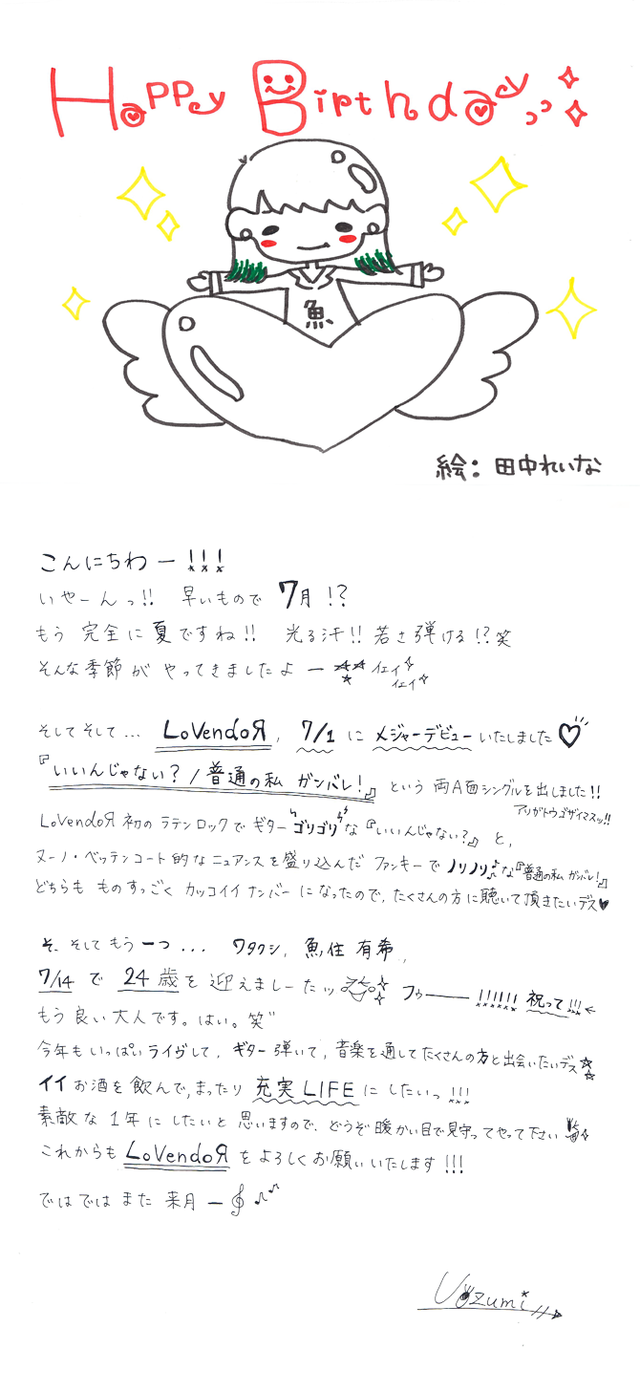 Happy Birthday
魚
絵: 田中れいな
こんにちわー!!!
いやーんっ!! 早いもので 7月!?
もう 完全に夏ですね!! 光る汗!! 若さ弾ける!?笑
そんな季節が やってきましたよ ー☆☆☆ イェイ
イェイ
そしてそして... LoVendoЯ, 7/1 に メジャーデビューいたしました♡
『いいんじゃない? / 普通の私 ガンバレ!』 という 両A面シングルを出しました!!
アリガトウゴザイマスッ!!
LoVendoЯ初のラテンロックで ギターゴリゴリな『いいんじゃない?』と,
ヌーノ・ベッテンコート的なニュアンスを盛り込んだ ファンキーで ノリノリ♪な『普通の私 ガンバレ!』
どちらも ものすっごく カッコイイナンバーになったので, たくさんの方に聴いて頂きたいデス♥
そ, そしてもう一つ... ワタクシ, 魚住 有希,
7/14 で 24歳を迎えましーたッ フゥ―― !!!!!! 祝って!!!←
もう良い大人です。はい。笑
今年もいっぱいライヴして, ギター弾いて, 音楽を通してたくさんの方と出会いたいデス☆
イイお酒を飲んで, まったり 充実LIFEにしたいっ!!!
素敵な1年にしたいと思いますので, どうぞ暖かい目で見守ってやって下さい
これからも LoVendoЯをよろしくお願いいたします!!!
ではでは また 来月ー
Uozumi